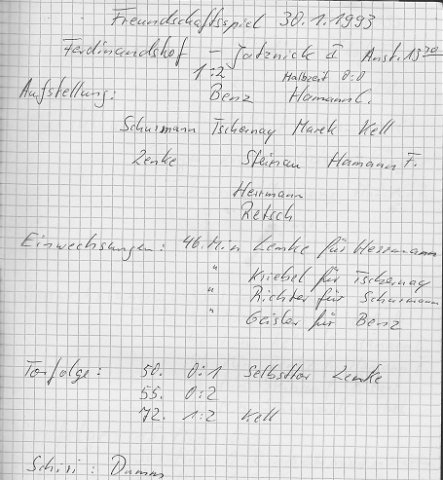 Freundschaftsspiel 30.1.1993
Ferdinandshof - Jatznick I Anst. 13 30
1:2 Halbzeit 0:0
Aufstellung: Benz Hamann C.
Schurmann Tschernay Marek Kell
Zenke Steinau Hamann F.
Herrmann
Retsch
Einwechslungen: 46. Min Lemke für Herrmann
" Kriebel für Tschernay
" Richter für Schurmann
" Geisler für Benz
Torfolge: 50. 0:1 Selbsttor Lemke
55. 0:2
72. 1:2 Kell
Schiri: Damm